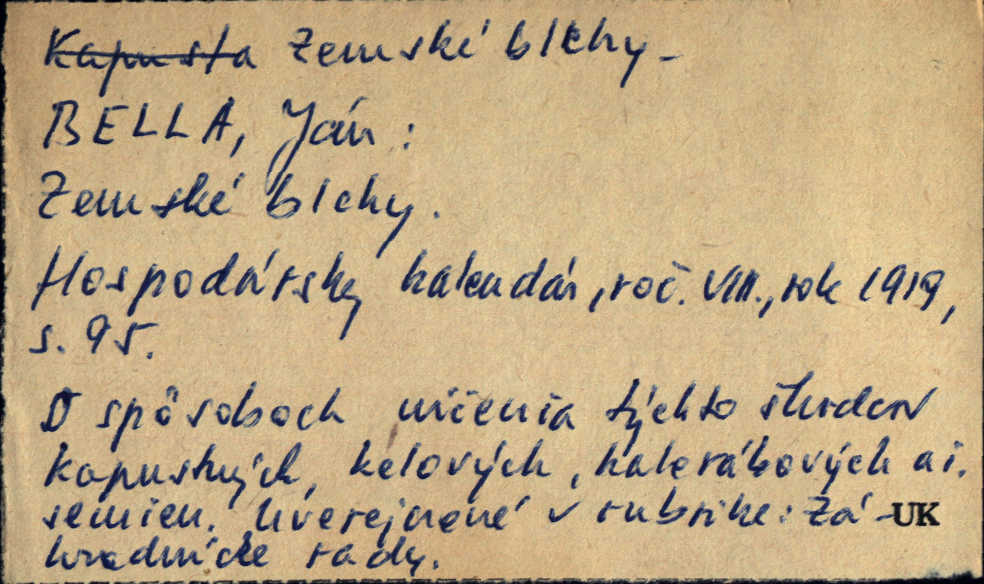 Kapusta Zemské blchy -
BELLA, Ján:
Zemské blchy.
Hospodársky kalendár, roč. VIII., rok 1919,
s. 95.
O spôsoboch ničenia týchto škodcov
kapustných, kelových, kalerábových a i.
semien. Uverejnené v rubrike: Zá-
UK
hradnícke rady.